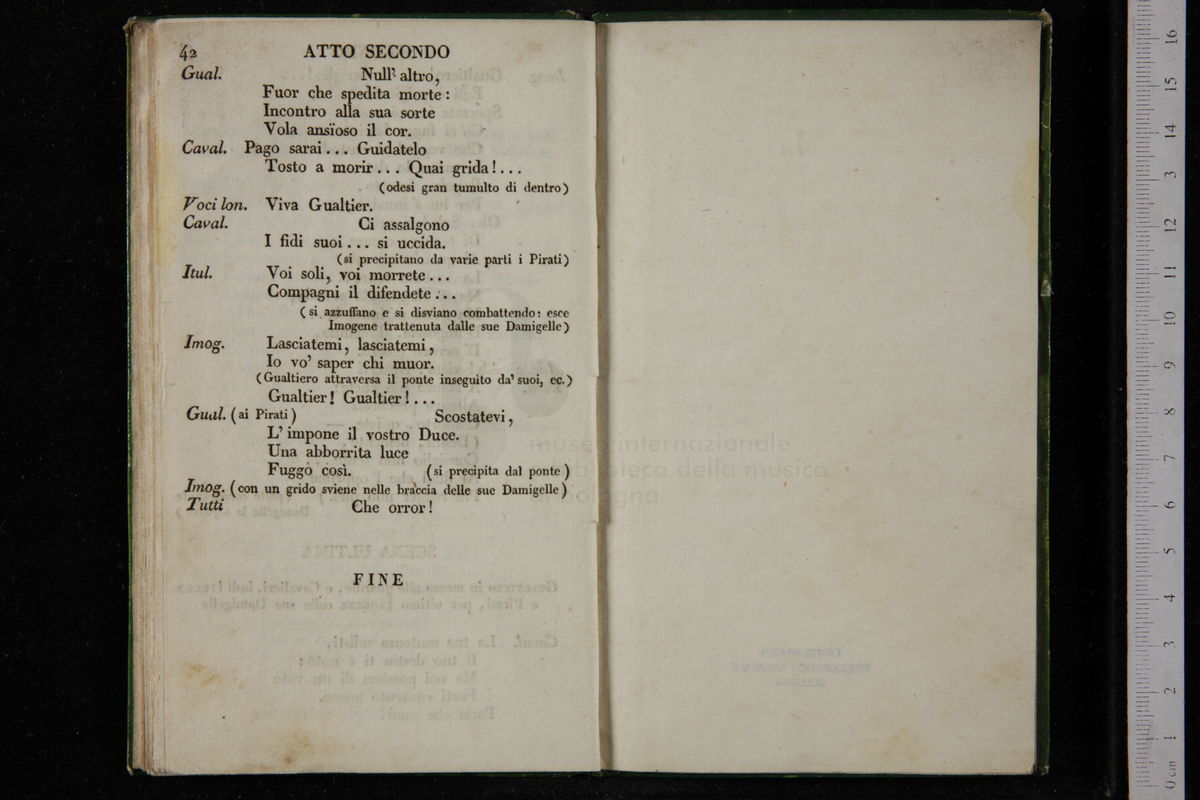 42 ATTO SECONDO
Gual. Null' altro,
Fuor che spedita morte :
Incontro alla sua sorte
Vola ansïoso il cor.
Caval. Pago sarai... Guidatelo
Tosto a morir... Quai grida!...
(odesi gran tumulto di dentro)
Voci lon. Viva Gualtier.
Caval. Ci assalgono
I fidi suoi... si uccida.
(si precipitano da varie parti i Pirati)
Itul. Voi soli, voi morrete...
Compagni il difendete...
( si azzuffano e si disviano combattendo: esce
Imogene trattenuta dalle sue Damigelle)
Imog. Lasciatemi, lasciatemi,
Io vo' saper chi muor.
(Gualtiero attraversa il ponte inseguito da' suoi, ec.)
Gualtier! Gualtier!...
Gual. (ai Pirati) Scostatevi,
L' impone il vostro Duce.
Una abborrita luce
Fuggo così. (si precipita dal ponte)
Imog. (con un grido sviene nelle braccia delle sue Damigelle)
Tutti Che orror!
FINE
museo internazionale
biblioteca della musica
bologna
0 cm 1 2 3 4 5 6 7 8 9 10 11 12 3 14 15 16